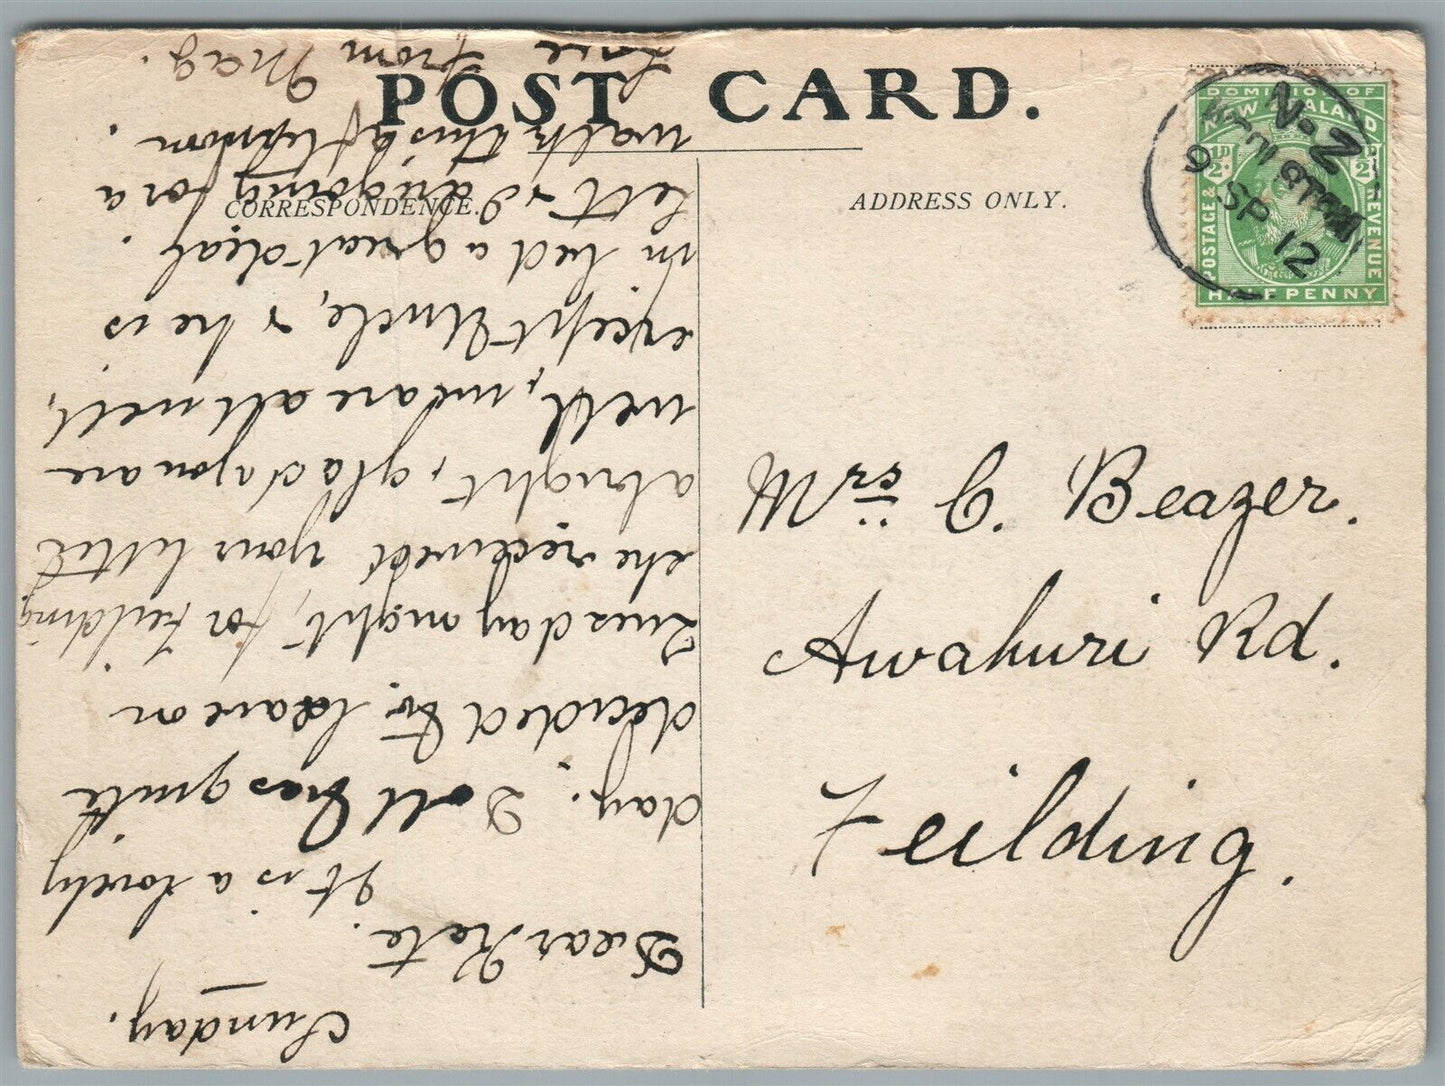 POST CARD.
CORRESPONDENCE.
ADDRESS ONLY.
DOMINION OF
NEW ZEALAND
½D. ½D.
POSTAGE & REVENUE
HALF PENNY
N.Z
9 SP 12
Mrs C. Beazer.
Awahuri Rd.
Feilding.
Sunday.
Dear Kate.
It is a lovely
day. Doll has quite
decided to leave on
Tuesday night, for Feilding
she received your letter
alright, glad you are
well, we are all well,
except Uncle, & he is
in bed a great deal.
Lett & I are going for a
walk this afternoon.
Love
from Mag.